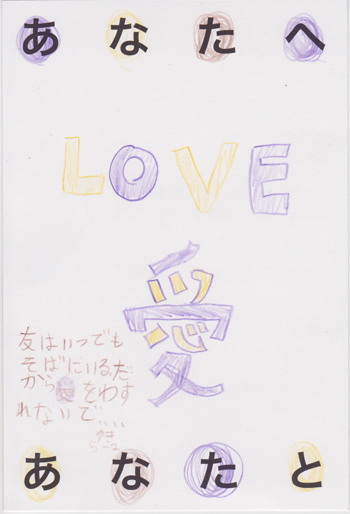 あなたへ
LOVE
愛
友はいつでも
そばにいるだ
から をわす
れないで、、、
あなたと